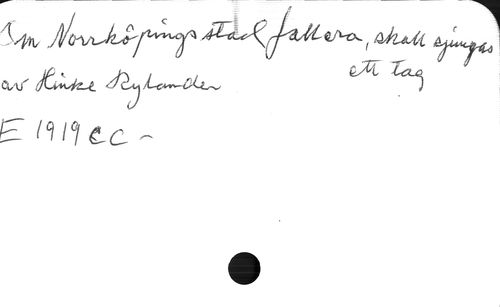 Om Norrköpings stad fallera, skall sjungas
ett tag
av Hinke Rylander
E 1919 CC -